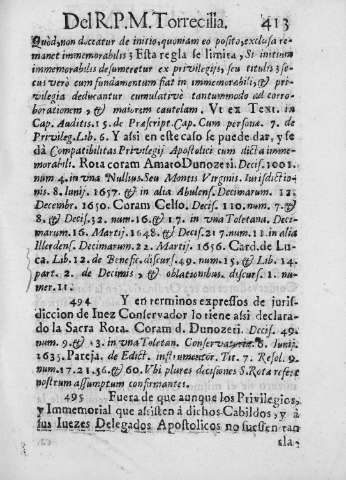 Del R. P. M. Torrecilla. 413
Quòd, non doceatur de initio, quoniam eo posito, exclusa re-
manet immemorabilis; Esta regla se limita, Si initium
immemorabilis desumeretur ex privilegijs, seu titulis; se-
cus verò cum fundamentum fiat in immemorabili, & pri-
vilegia deducantur cumulativè tantummodo ad corro-
borationem, & maiorem cautelam. Vt ex Text. in
Cap. Auditis. 15. de Præscript. Cap. Cum persona. 7. de
Privileg. Lib. 6. Y assi en este caso se puede dar, y se
dà Compatibilitas Privilegij Apostolici cum dicta imme-
morabili. Rota coram Amaro Dunozeti. Decis. 1001.
num 4. in vna Nullius. Seu Montis Virginis. Iurisdictio-
nis. 8. Iunij. 1657. & in alia Abulens. Decimarum. 12.
Decembr. 1650. Coram Celso. Decis. 110. num. 7. &
8. & Decis. 32. num. 16. & 17. in vna Toletana. Deci-
marum. 16. Martij. 1648. & Decis. 217. num. 11. in alia
Illerdens. Decimarum. 22. Martij. 1656. Card. de Lu-
ca. Lib. 12. de Benefic. discurs. 49. num. 15. & Lib. 14.
part. 2. de Decimis, & oblationibus. discurs. 1. nu-
mer. 11.
494 Y en terminos expressos de jurif-
diccion de Iuez Conservador lo tiene assi declara-
do la Sacra Rota. Coram d. Dunozeti. Decis. 49.
num. 9. & 13. in vna Toletan. Conservatoriæ. 8. Iunij.
1635. Pareja. de Edict. instrumentor. Tit. 7. Resol. 9.
num. 17. 21. 36. & 60. Vbi plures decisiones S. Rota refert
nostrum assumptum confirmantes.
495 Fuera de que aunque los Privilegios,
y Immemorial que assisten à dichos Cabildos, y à
sus Iuezes Delegados Apostolicos no fuessen tan
cla-